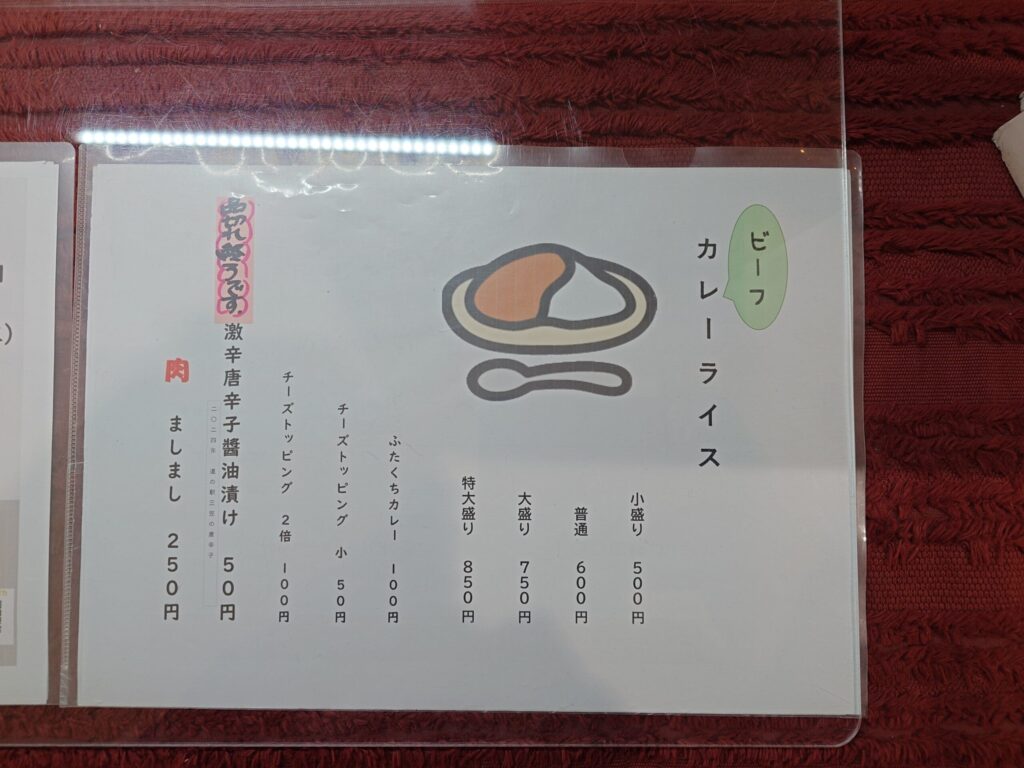 ビーフ
カレーライス
小盛り 500円
普通 600円
大盛り 750円
特大盛り 850円
ふたくちカレー 100円
チーズトッピング 小 50円
チーズトッピング 2倍 100円
品切れ終うです。
激辛唐辛子醤油漬け 50円
二〇二四年 道の駅三笠の唐辛子
肉 ましまし 250円